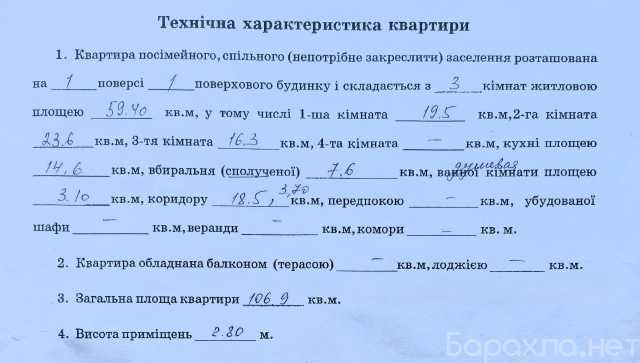 Технічна характеристика квартири
1. Квартира посімейного, спільного (непотрібне закреслити) заселення розташована
на 1 поверсі 1 поверхового будинку і складається з 3 кімнат житловою
площею 59.40 кв.м, у тому числі 1-ша кімната 19.5 кв.м, 2-га кімната
23.6 кв.м, 3-тя кімната 16.3 кв.м, 4-та кімната – кв.м, кухні площею
14,6 кв.м, вбиральня (сполученої) 7.6 кв.м, ванної душевая кімнати площею
3.10 кв.м, коридору 18.5, 3,70 кв.м, передпокою – кв.м, убудованої
шафи – кв.м, веранди – кв.м, комори – кв. м.
2. Квартира обладнана балконом (терасою) – кв.м, лоджією – кв.м.
3. Загальна площа квартири 106.9 кв.м.
4. Висота приміщень 2.80 м.
Барахло.net